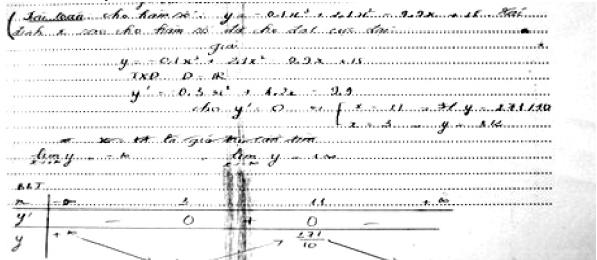 ( Bài toán cho hàm số: y = -0,1x³ + 2,1x² - 9,9x + 15
định x sao cho hàm số đã cho đạt cực đại
giải
y = -0,1x³ + 2,1x² - 9,9x + 15
TXĐ D = R
y' = -0,3x² + 4,2x - 9,9
cho y' = 0 x = 11 y = 271/10
x = 3 y =
là giá trị cần tìm
lim y = -∞ lim y = +∞
BBT
x -∞ 3 11 +∞
y' - 0 + 0 -
y +∞ 271/10